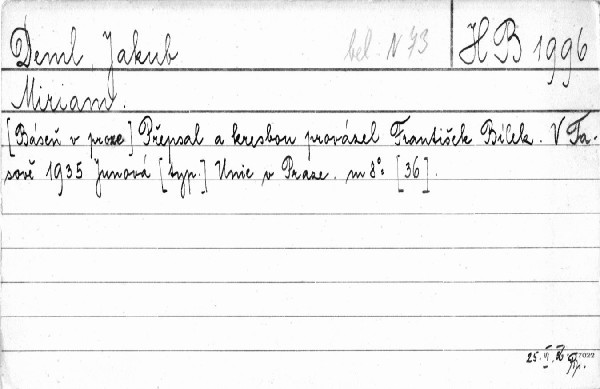 Deml, Jakub bel. N 73 HB 1996
Miriam.
[Báseň v proze] Přepsal a kresbou provázel František Bílek. V Ta-
sově 1935 Junová [typ.] Unie v Praze. m 8° [36].
25. VI. 36 7022